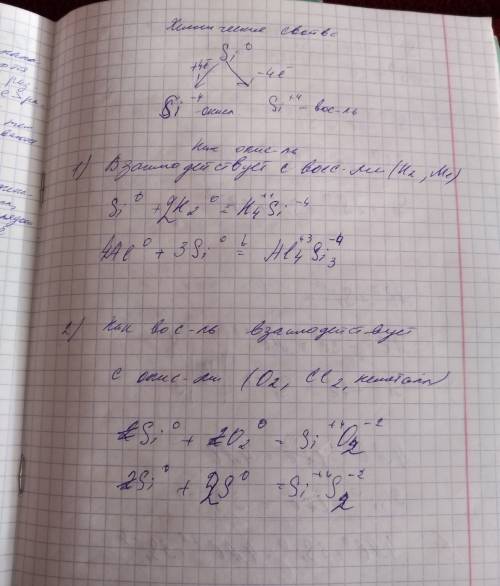 Химические свойства
Si⁰
+4ē −4ē
Si⁻⁴ - окисл Si⁺⁴ - вос-ль
Как окис-ль
1) Взаимодействует с вос-ми (H₂, Me)
Si⁰ + 2H₂⁰ = H₄⁺¹Si⁻⁴
4Al⁰ + 3Si⁰ = Al₄⁺³Si₃⁻⁴
2) Как вос-ль взаимодействует
с окис-ми (O₂, Cl₂, неметаллы)
Si⁰ + O₂⁰ = Si⁺⁴O₂⁻²
Si⁰ + 2S⁰ = Si⁺⁴S₂⁻²